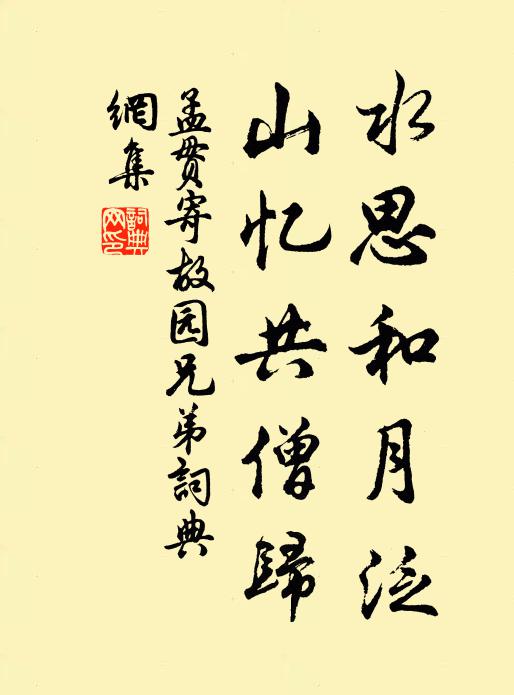 水思和月泛
山忆共僧歸
孟贯寄故园兄弟詞典
網集
詞典
网印